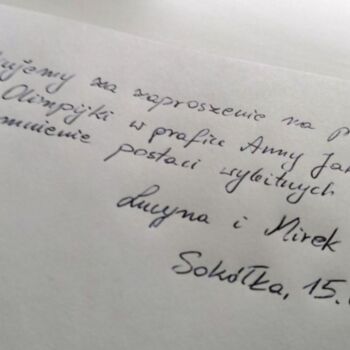 ujemy za zaproszenie na p
Olimpijki w grafice Anny Jak
mnienie postaci wybitnych
Lucyna i Mirek
Sokółka, 15.